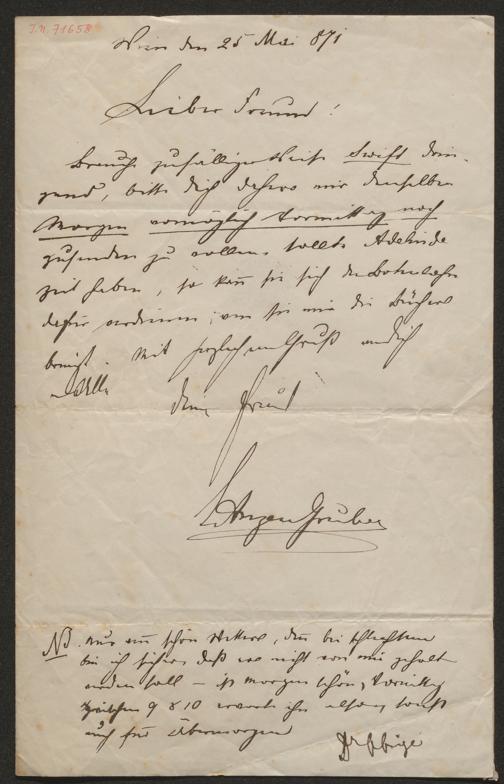 I.N. 71658
Wien den 25 Mai 871
Lieber Freund!
Brauche zufälliger Weise Swift drin-
gend, bitte dich daher mir denselben
Morgen womöglich Vormittag noch
zusenden zu wollen. Sollte Adelinde
Zeit haben, so kann sie sich den Botenlohn
dafür verdienen, wenn sie mir die Bücher
bringt. Mit herzlichem Gruß an dich
und Alle
dein Freund
LAnzenGruber
NB. Nur wenn schön Wetter, denn bei schlechtem
bin ich sicher, daß es nicht von mir geholt
werden soll – ist morgen schön, Vormittag
zwischen 9 & 10 erwarte ich, sonst
auch für Übermorgen